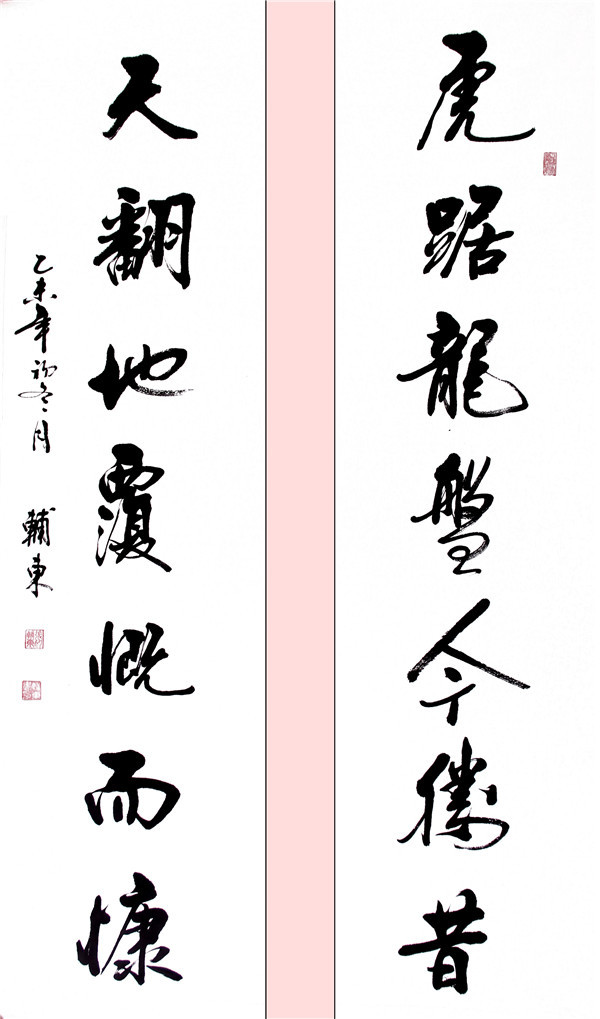 虎踞龍盤今勝昔
天翻地覆慨而慷
乙未年初冬月 輔東